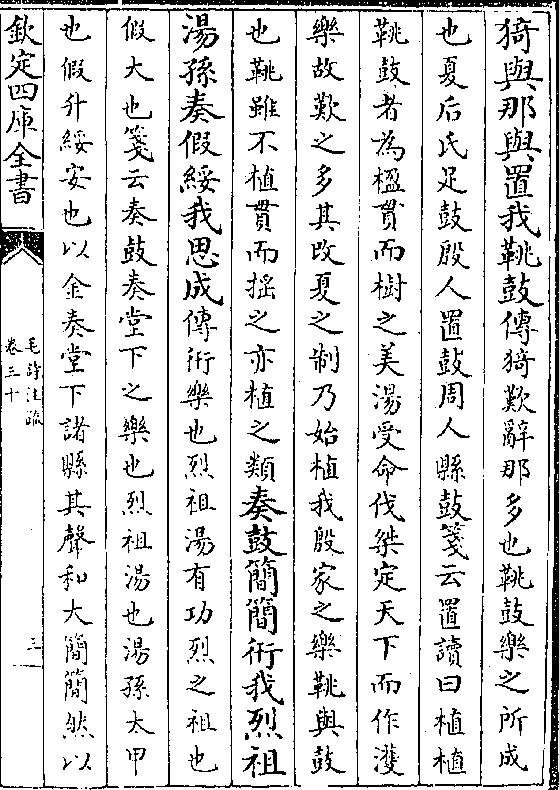 猗與那與置我鞉鼓傳猗歎辭那多也鞉鼓樂之所成
也夏后氏足鼓殷人置鼓周人縣鼓箋云置讀曰植植
鞉鼓者為楹貫而樹之美湯受命伐桀定天下而作濩
樂故歎之多其改夏之制乃始植我殷家之樂鞉與鼓
也鞉雖不植貫而揺之亦植之類奏鼓簡簡衎我烈祖
湯孫奏假綏我思成傳衎樂也烈祖湯有功烈之祖也
假大也箋云奏鼓奏堂下之樂也烈祖湯也湯孫太甲
也假升綏安也以金奏堂下諸縣其聲和大簡簡然以
欽定四庫全書
毛詩注疏
卷三十
三